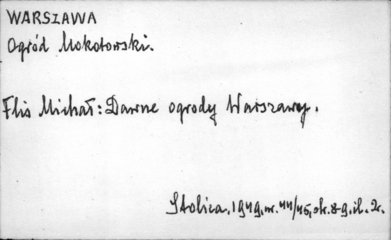 WARSZAWA
Ogród Mokotowski.
Flis Michał: Dawne ogrody Warszawy.
Stolica, 1949, nr. 44/45, str. 8-9, il. 2.